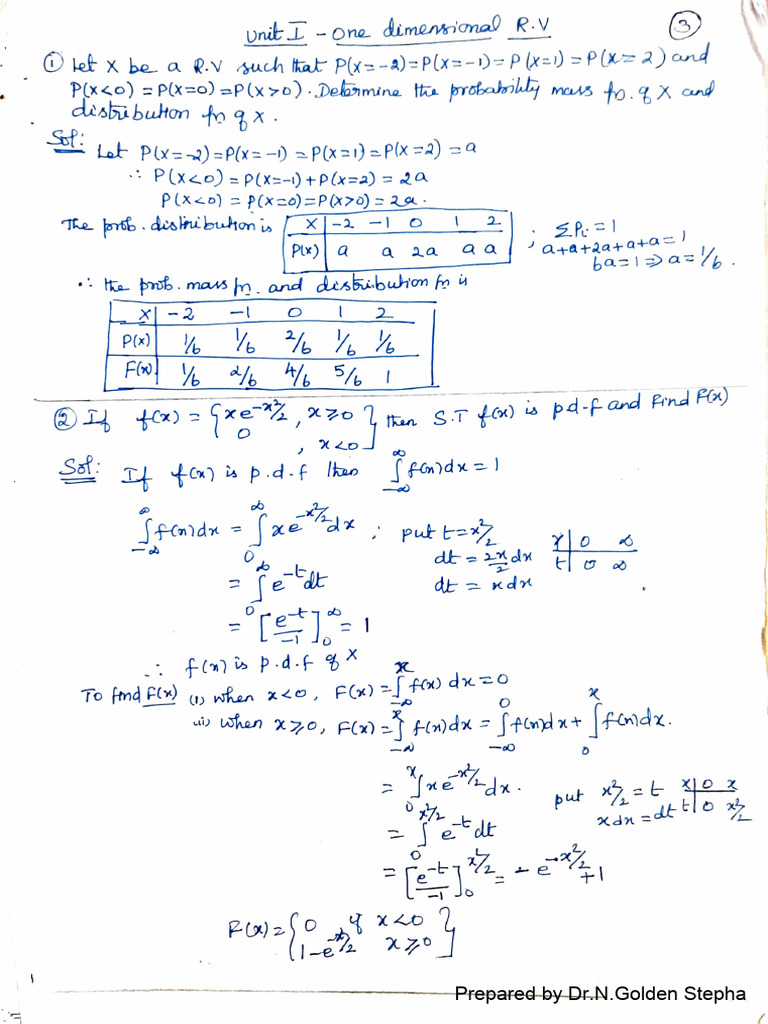 Unit I - One dimensional R.V
3
① Let X be a R.V such that P(X=-2)=P(X=-1)=P(X=1)=P(X=2) and
P(X<0)=P(X=0)=P(X>0). Determine the probability mass fn. of X and
distribution fn of X.
Sol: Let P(X=-2)=P(X=-1)=P(X=1)=P(X=2)=a
∴ P(X<0)=P(X=-1)+P(X=2)=2a
P(X<0)=P(X=0)=P(X>0)=2a.
The prob. distribution is
X -2 -1 0 1 2
P(x) a a 2a a a
; ΣPi=1
a+a+2a+a+a=1
6a=1⇒a=1/6.
∴ the prob. mass fn. and distribution fn is
X -2 -1 0 1 2
P(x) 1/6 1/6 2/6 1/6 1/6
F(x) 1/6 2/6 4/6 5/6 1
② If f(x) = {xe^{-x²/2}, x≥0
0, x<0} then S.T f(x) is p.d.f and Find F(x)
Sol: If f(x) is p.d.f then ∫_{-∞}^{∞} f(x)dx=1
∫_{-∞}^{∞} f(x)dx = ∫_0^∞ xe^{-x²/2}dx ; put t=x²/2
dt = 2x/2 dx
dt = x dx
x 0 ∞
t 0 ∞
= ∫_0^∞ e^{-t}dt
= [e^{-t}/-1]_0^∞ = 1
∴ f(x) is p.d.f of X
To find F(x) (i) when x<0, F(x)=∫_{-∞}^{x} f(x) dx=0
(ii) when x≥0, F(x)=∫_{-∞}^{x} f(x)dx = ∫_{-∞}^{0} f(x)dx + ∫_0^x f(x)dx.
= ∫_0^x xe^{-x²/2}dx. put x²/2 = t
x dx = dt
x 0 x
t 0 x²/2
= ∫_0^{x²/2} e^{-t}dt
= [e^{-t}/-1]_0^{x²/2} = -e^{-x²/2}+1
F(x)={0 if x<0
1-e^{-x²/2} x≥0}
Prepared by Dr.N.Golden Stepha